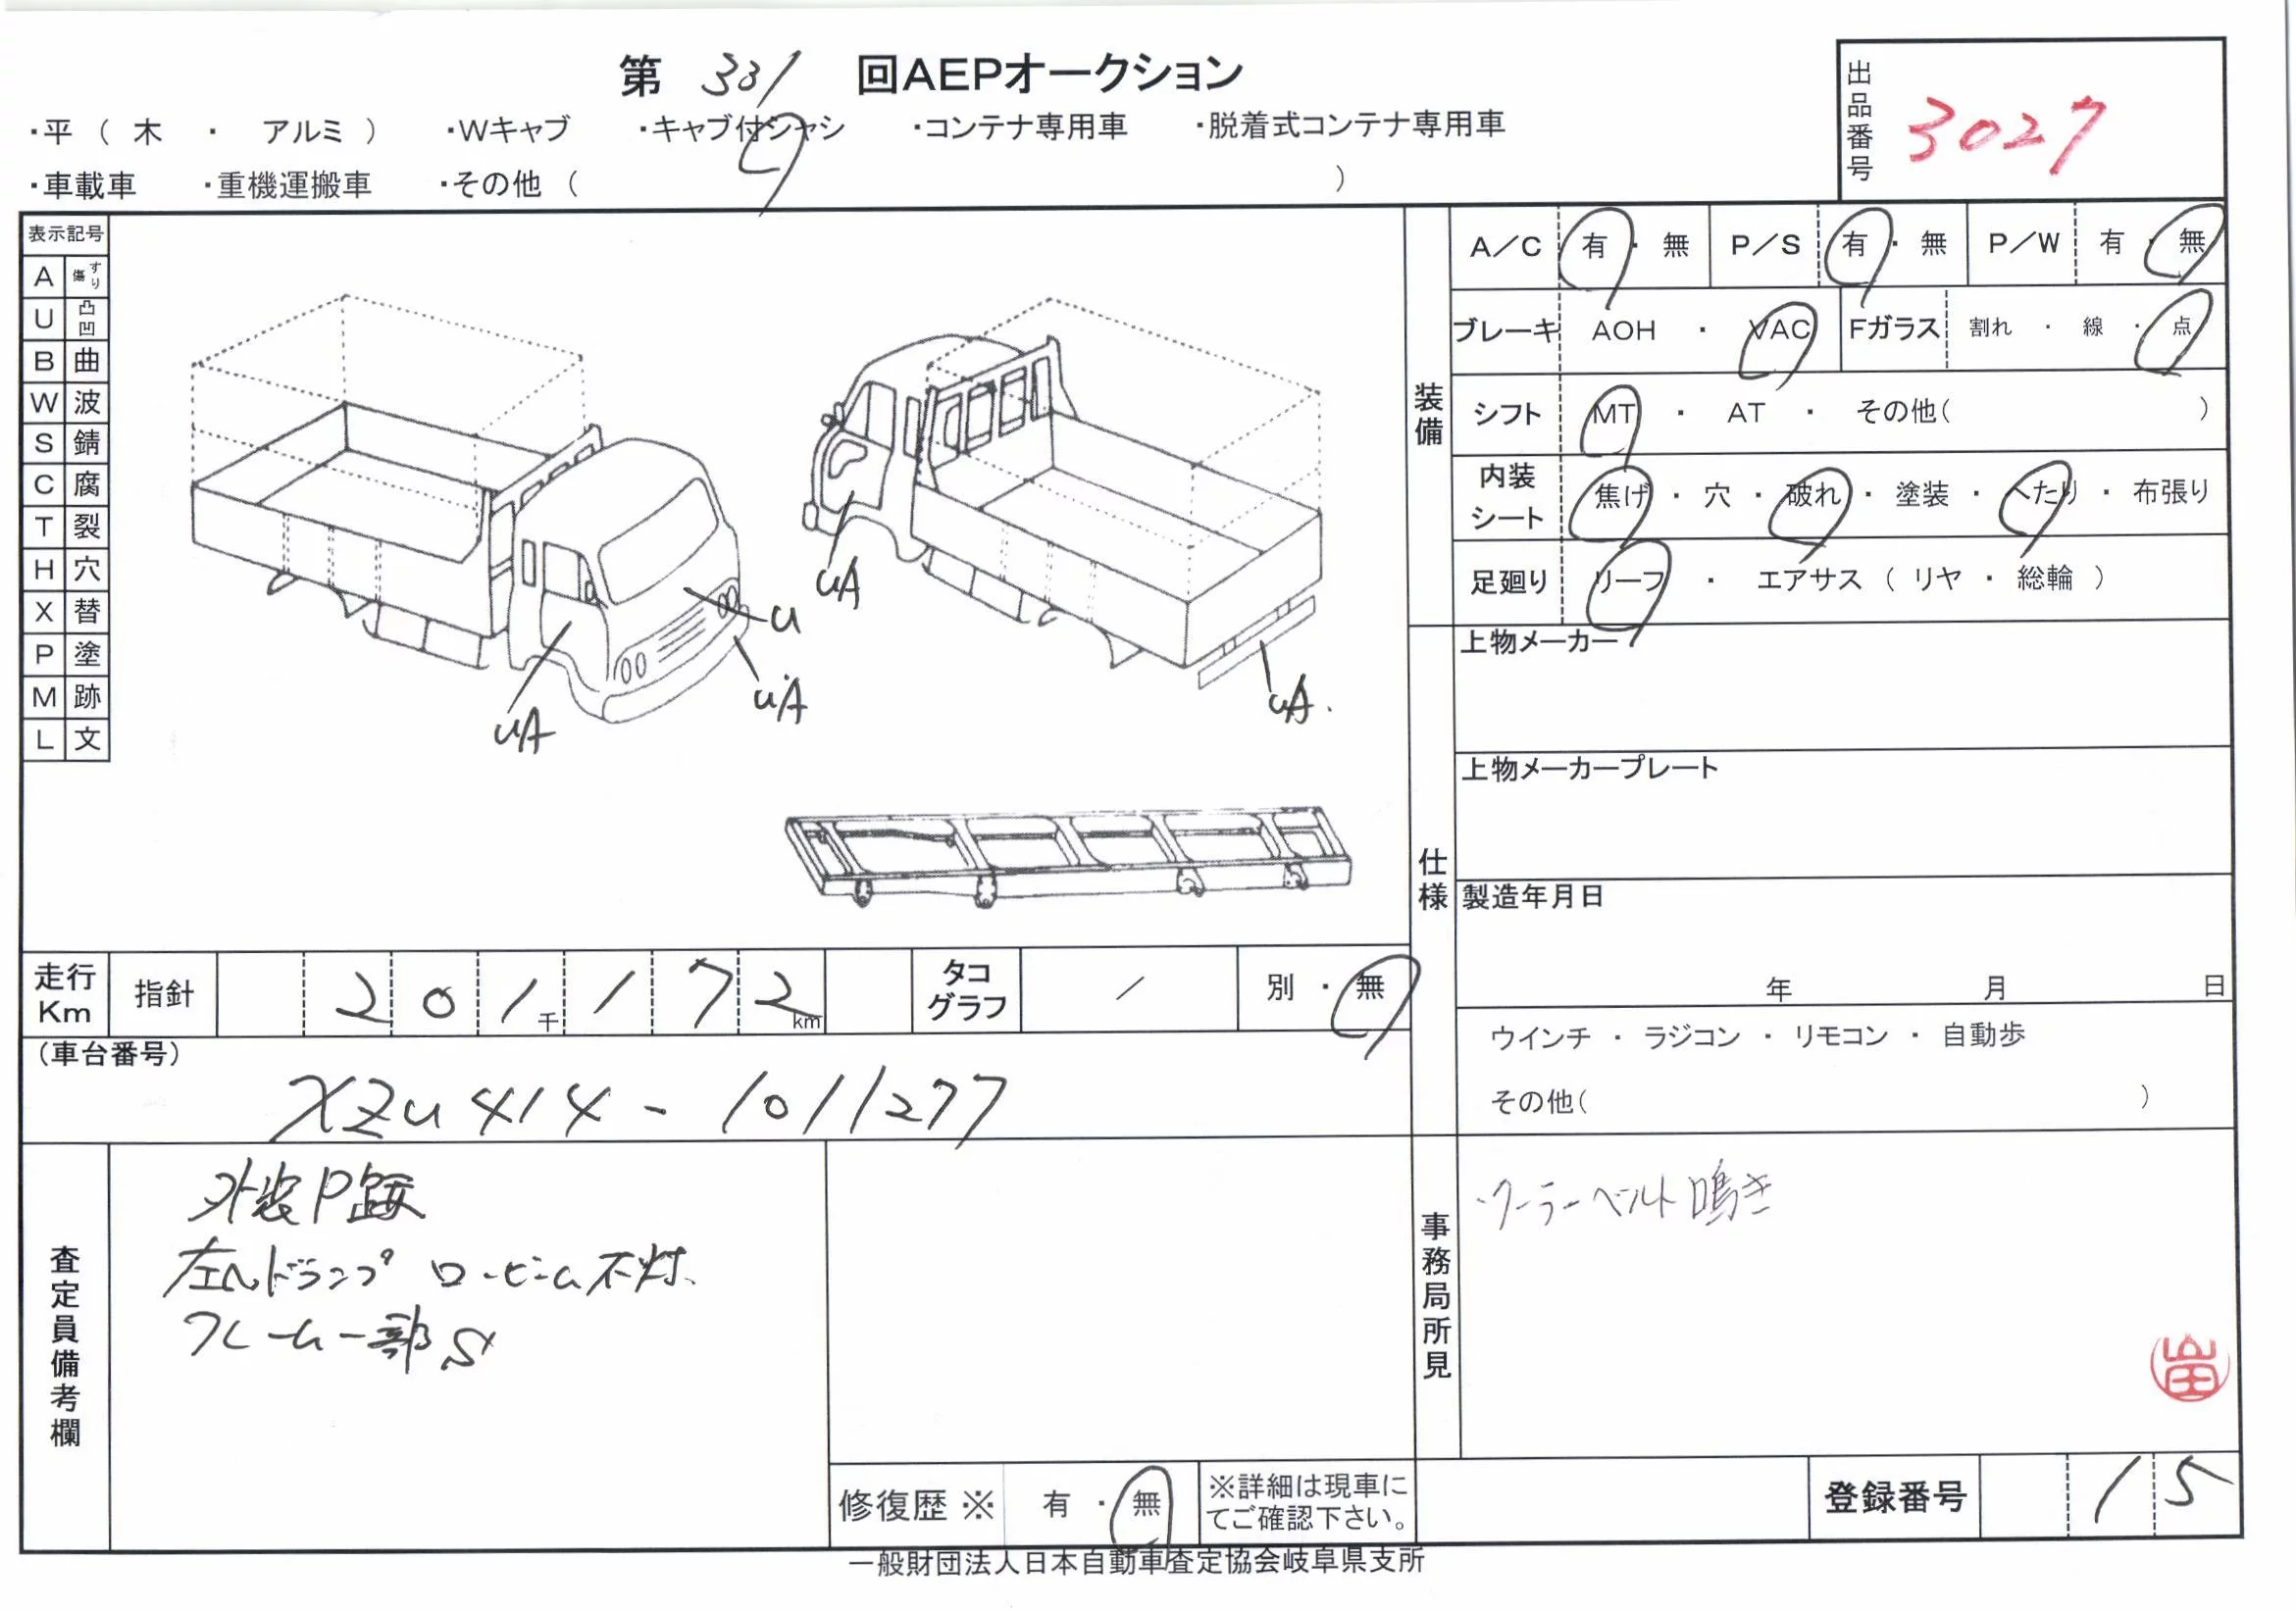 第 331 回AEPオークション
・平 ( 木 ・ アルミ ) ・Wキャブ ・キャブ付シャシ ・コンテナ専用車 ・脱着式コンテナ専用車
・車載車 ・重機運搬車 ・その他 ( )
出品番号 3027
表示記号
A すり傷
U 凸凹
B 曲
W 波
S 錆
C 腐
T 裂
H 穴
X 替
P 塗
M 跡
L 文
uA
u
uA
uA
uA.
装備
A/C 有・無 P/S 有・無 P/W 有・無
ブレーキ AOH ・ VAC Fガラス 割れ ・ 線 ・ 点
シフト MT ・ AT ・ その他( )
内装シート 焦げ ・ 穴 ・ 破れ ・ 塗装 ・ へたり ・ 布張り
足廻り リーフ ・ エアサス ( リヤ ・ 総輪 )
仕様
上物メーカー
上物メーカープレート
製造年月日
年 月 日
ウインチ ・ ラジコン ・ リモコン ・ 自動歩
その他( )
走行Km 指針 201千172km タコグラフ / 別・無
(車台番号)
XZU414-1011277
査定員備考欄
外装P跡
左ヘッドランプ ロービーム不灯
フレーム一部S
修復歴 ※ 有 ・ 無 ※詳細は現車にてご確認下さい。
事務局所見
・クーラーベルト鳴き
登録番号 15
一般財団法人日本自動車査定協会岐阜県支所